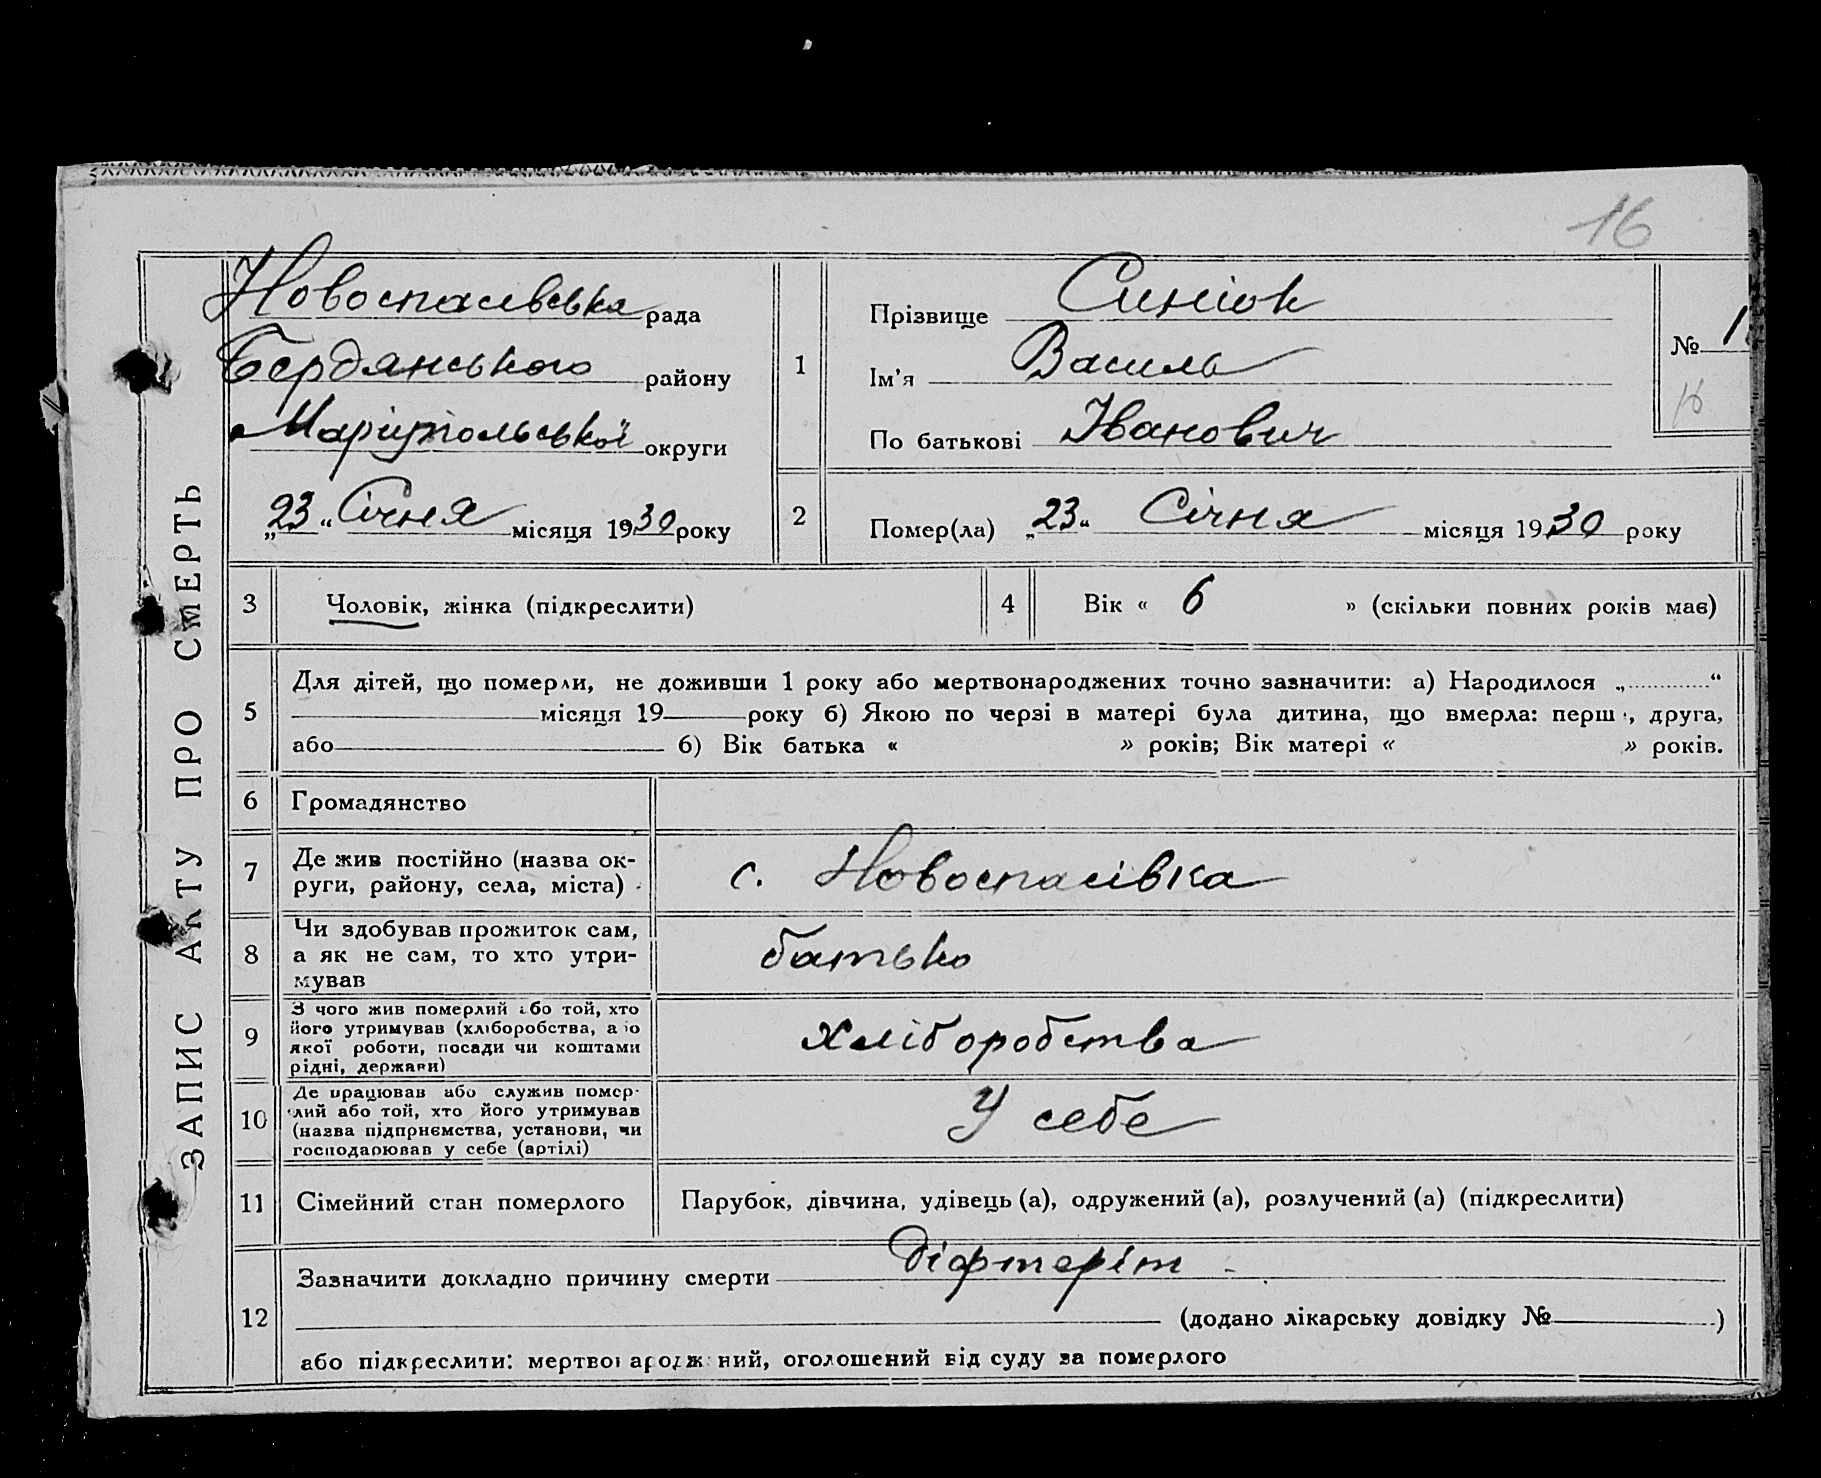 16
ЗАПИС АКТУ ПРО СМЕРТЬ
Новоспасівська рада
Бердянського району
Маріупольської округи
„23“ Січня місяця 1930 року
1
Прізвище Синіок
Ім’я Василь
По батькові Іванович
№ 1
16
2
Помер(ла) „23“ Січня місяця 1930 року
3 Чоловік, жінка (підкреслити)
4 Вік « 6 » (скільки повних років має)
5
Для дітей, що померли, не доживши 1 року або мертвонароджених точно зазначити: а) Народилося „ “
місяця 19 року б) Якою по черзі в матері була дитина, що вмерла: перш , друга,
або б) Вік батька « » років; Вік матері « » років.
6 Громадянство
7
Де жив постійно (назва ок-
руги, району, села, міста)
с. Новоспасівка
8
Чи здобував прожиток сам,
а як не сам, то хто утри-
мував
батько
9
З чого жив померлий або той, хто
його утримував (хліборобства, або
якої роботи, посади чи коштами
рідні, держави)
хліборобства
10
Де працював або служив помер-
лий або той, хто його утримував
(назва підприємства, установи, чи
господарював у себе (артілі)
У себе
11 Сімейний стан померлого
Парубок, дівчина, удівець (а), одружений (а), розлучений (а) (підкреслити)
12
Зазначити докладно причину смерти діфтеріт
(додано лікарську довідку № )
або підкреслити: мертвонароджений, оголошений від суду за померлого